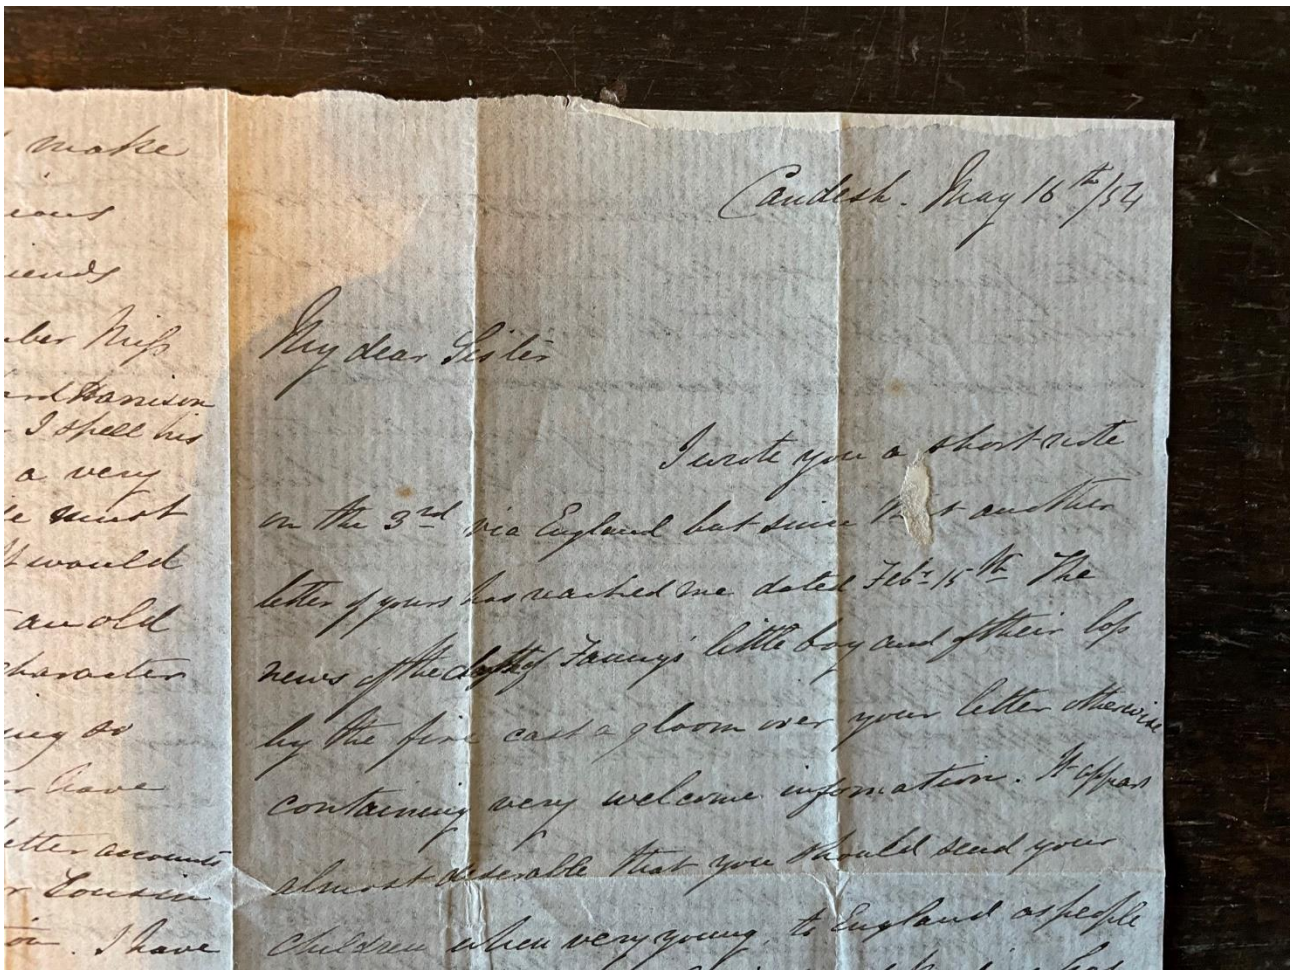 make
ious
iends
ber Miss
and Harrison
I spell his
a very
must
would
an old
character
ing so
have
etter accounts
r Cousin
I have
Candesh. May 16th/54
My dear Sister
I wrote you a short note
on the 3rd via England but since that another
letter of yours has reached me dated Feby 15th The
news of the death of Fanny's little boy and of their loss
by the fire cast a gloom over your letter otherwise
containing very welcome information. It appears
almost desirable that you should send your
children when very young, to England as people